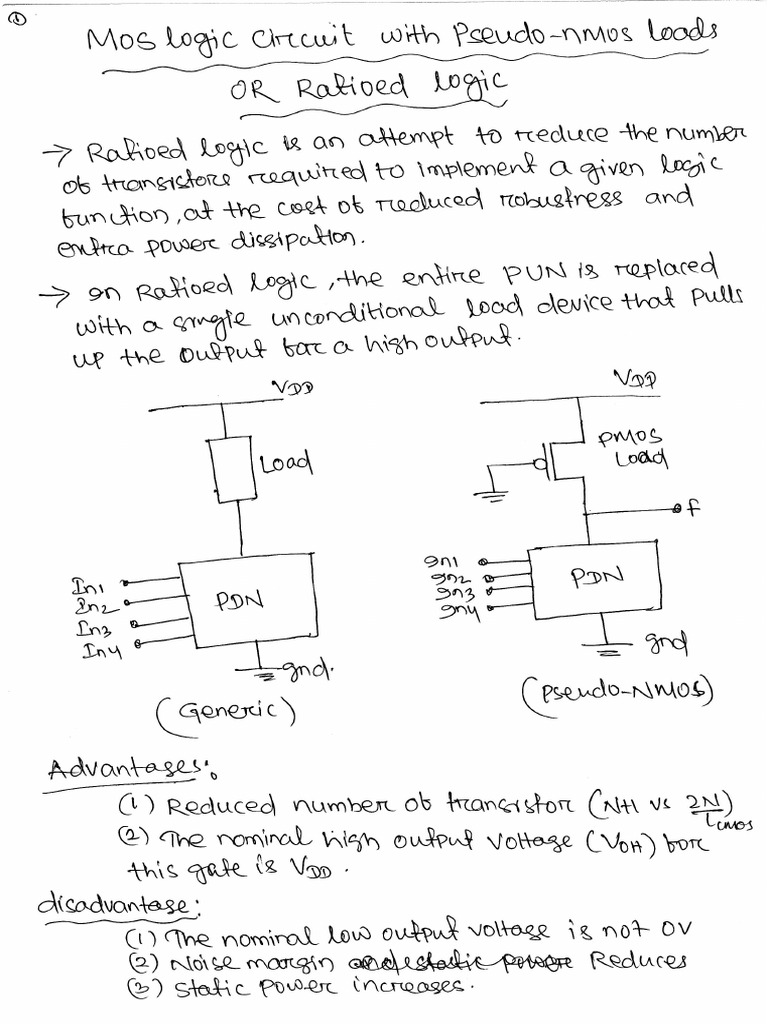 1
MOS logic Circuit with Pseudo-nMOS loads
OR Ratioed logic
→ Ratioed logic is an attempt to reduce the number
of transistors required to implement a given logic
function, at the cost of reduced robustness and
extra power dissipation.
→ In Ratioed logic, the entire PUN is replaced
with a single unconditional load device that pulls
up the output for a high output.
VDD
Load
In1
In2
In3
In4
PDN
gnd.
(Generic)
VDD
PMOS
Load
f
In1
In2
In3
In4
PDN
gnd
(Pseudo-NMOS)
Advantages:
(1) Reduced number of transistor (N+1 vs 2N)
CMOS
(2) The nominal high output voltage (VOH) for
this gate is VDD.
disadvantage:
(1) The nominal low output voltage is not 0V
(2) Noise margin and static power Reduces
(3) Static power increases.